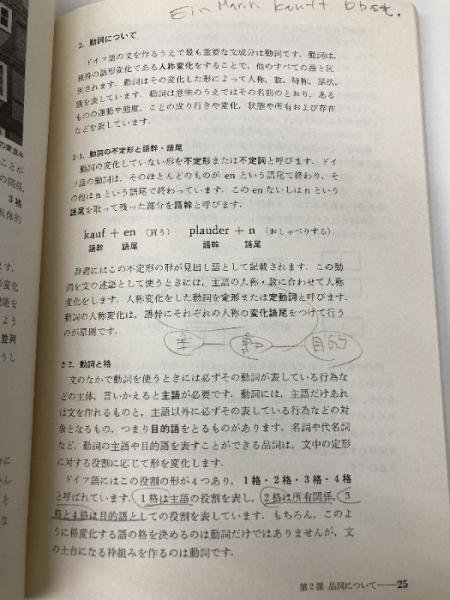 Ein Mann kauft Obst.
2. 動詞について
ドイツ語の文を作るうえで最も重要な文成分は動詞です。動詞は,
独特の語形変化である人称変化をすることで, 他のすべての語と区
別されます。動詞はその変化した形によって人称, 数, 時称, 話法,
態を表しています。動詞は意味のうえではその名前のとおり, ある
ものの運動や態度, ことの成り行きや変化, 状態や所有および存在
などを表しています。
2-1. 動詞の不定形と語幹・語尾
動詞の変化していない形を不定形または不定詞と呼びます。ドイ
ツ語の動詞は, そのほとんどのものが en という語尾で終わり, そ
の他は n という語尾で終わっています。この en ないしは n という
語尾を取って残った部分を語幹と呼びます。
kauf + en (買う) plauder + n (おしゃべりする)
語幹 語尾 語幹 語尾
辞書にはこの不定形の形が見出し語として記載されます。この動
詞を文の述語として使うときには, 主語の人称・数に合わせて人称
変化をします。人称変化をした動詞を定形または定動詞と呼びます.
動詞の人称変化は, 語幹にそれぞれの人称の変化語尾をつけて行う
のが原則です。
主 動 目的
2-2. 動詞と格
文のなかで動詞を使うときには必ずその動詞が表している行為な
どの主体, 言いかえると主語が必要です。動詞には, 主語だけあれ
ば文を作れるものと, 主語以外に必ずその表している行為などの対
象となるもの, つまり目的語をとるものがあります。名詞や代名詞
など, 動詞の主語や目的語を表すことができる品詞は, 文中の定形
に対する役割に応じて形を変化します。
ドイツ語にはこの役割の形が4つあり, 1格・2格・3格・4格
と呼ばれています。1格は主語の役割を表し, 2格は所有関係, 3
格と4格は目的語としての役割を表しています。もちろん, このよ
うに格変化する語の格を決めるのは動詞だけではありませんが, 文
の土台になる枠組みを作るのは動詞です。
第2課 品詞について——25